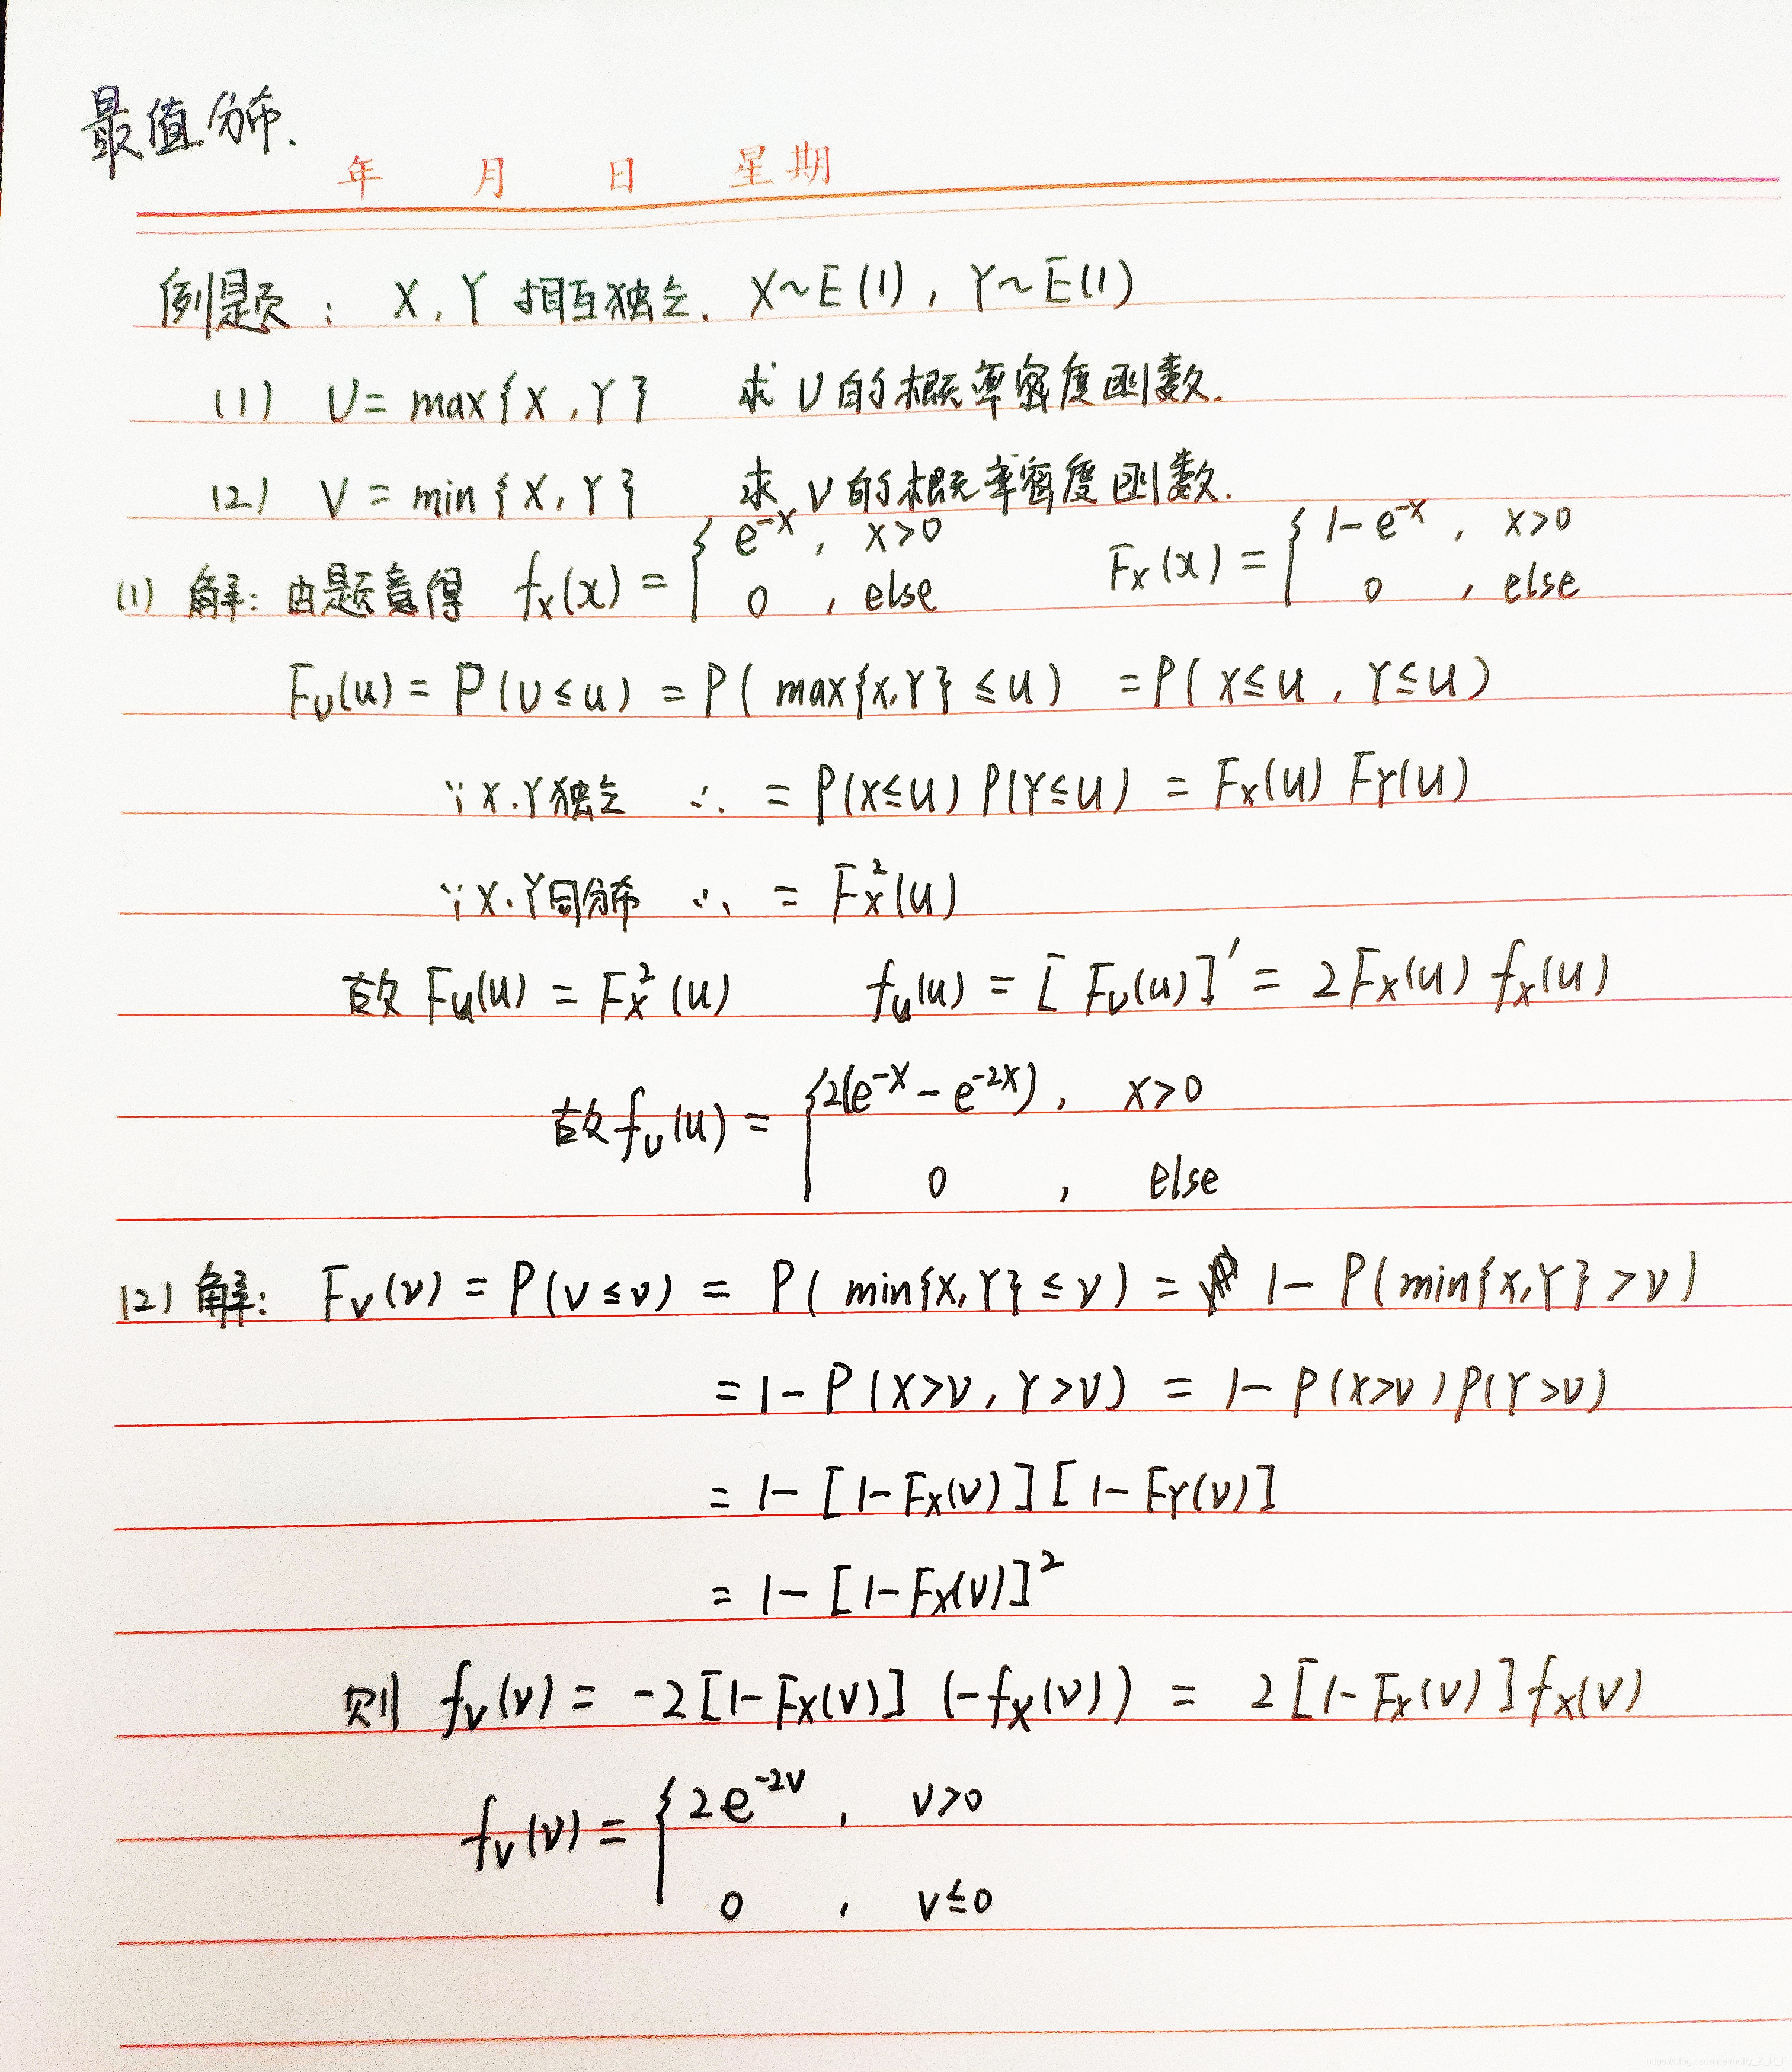 最值分布.
年 月 日 星期
例题: X, Y 相互独立. X~E(1), Y~E(1)
(1) U = max{X, Y} 求 U 的概率密度函数.
(2) V = min{X, Y} 求 V 的概率密度函数.
(1) 解: 由题意得 f_X(x) = { e^{-x}, x>0 F_X(x) = { 1-e^{-x}, x>0
0, else 0, else
F_U(u) = P(U≤u) = P(max{X,Y}≤u) = P(X≤u, Y≤u)
∵X.Y独立 ∴ = P(X≤u) P(Y≤u) = F_X(u) F_Y(u)
∵X.Y同分布 ∴ = F_X^2(u)
故 F_U(u) = F_X^2(u) f_U(u) = [F_U(u)]' = 2F_X(u) f_X(u)
故 f_U(u) = { 2(e^{-x} - e^{-2x}), x>0
0, else
(2) 解: F_V(v) = P(V≤v) = P(min{X,Y}≤v) = 1-P(min{X,Y}>v)
= 1-P(X>v, Y>v) = 1-P(X>v)P(Y>v)
= 1-[1-F_X(v)][1-F_Y(v)]
= 1-[1-F_X(v)]^2
则 f_V(v) = -2[1-F_X(v)](-f_X(v)) = 2[1-F_X(v)]f_X(v)
f_V(v) = { 2e^{-2v}, v>0
0, v≤0